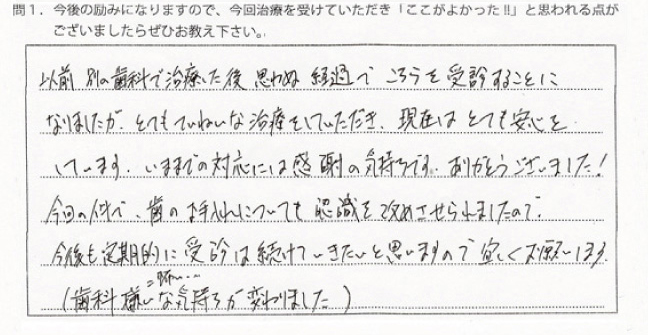 問1．今後の励みになりますので、今回治療を受けていただき「ここがよかった!!」と思われる点が
ございましたらぜひお教え下さい。
以前 別の歯科で治療した後 思わぬ 経過で こちらを 受診することに
なりましたが、とてもていねいな治療をしていただき、現在は とても安心を
しています。いままでの対応には感謝の気持ちです。ありがとうございました！
今回の件で、歯のお手入れについても 認識を改めさせられましたので、
今後も定期的に受診は続けていきたいと思いますので宜しくお願いします。
(歯科嫌いな気持ちが変わりました)